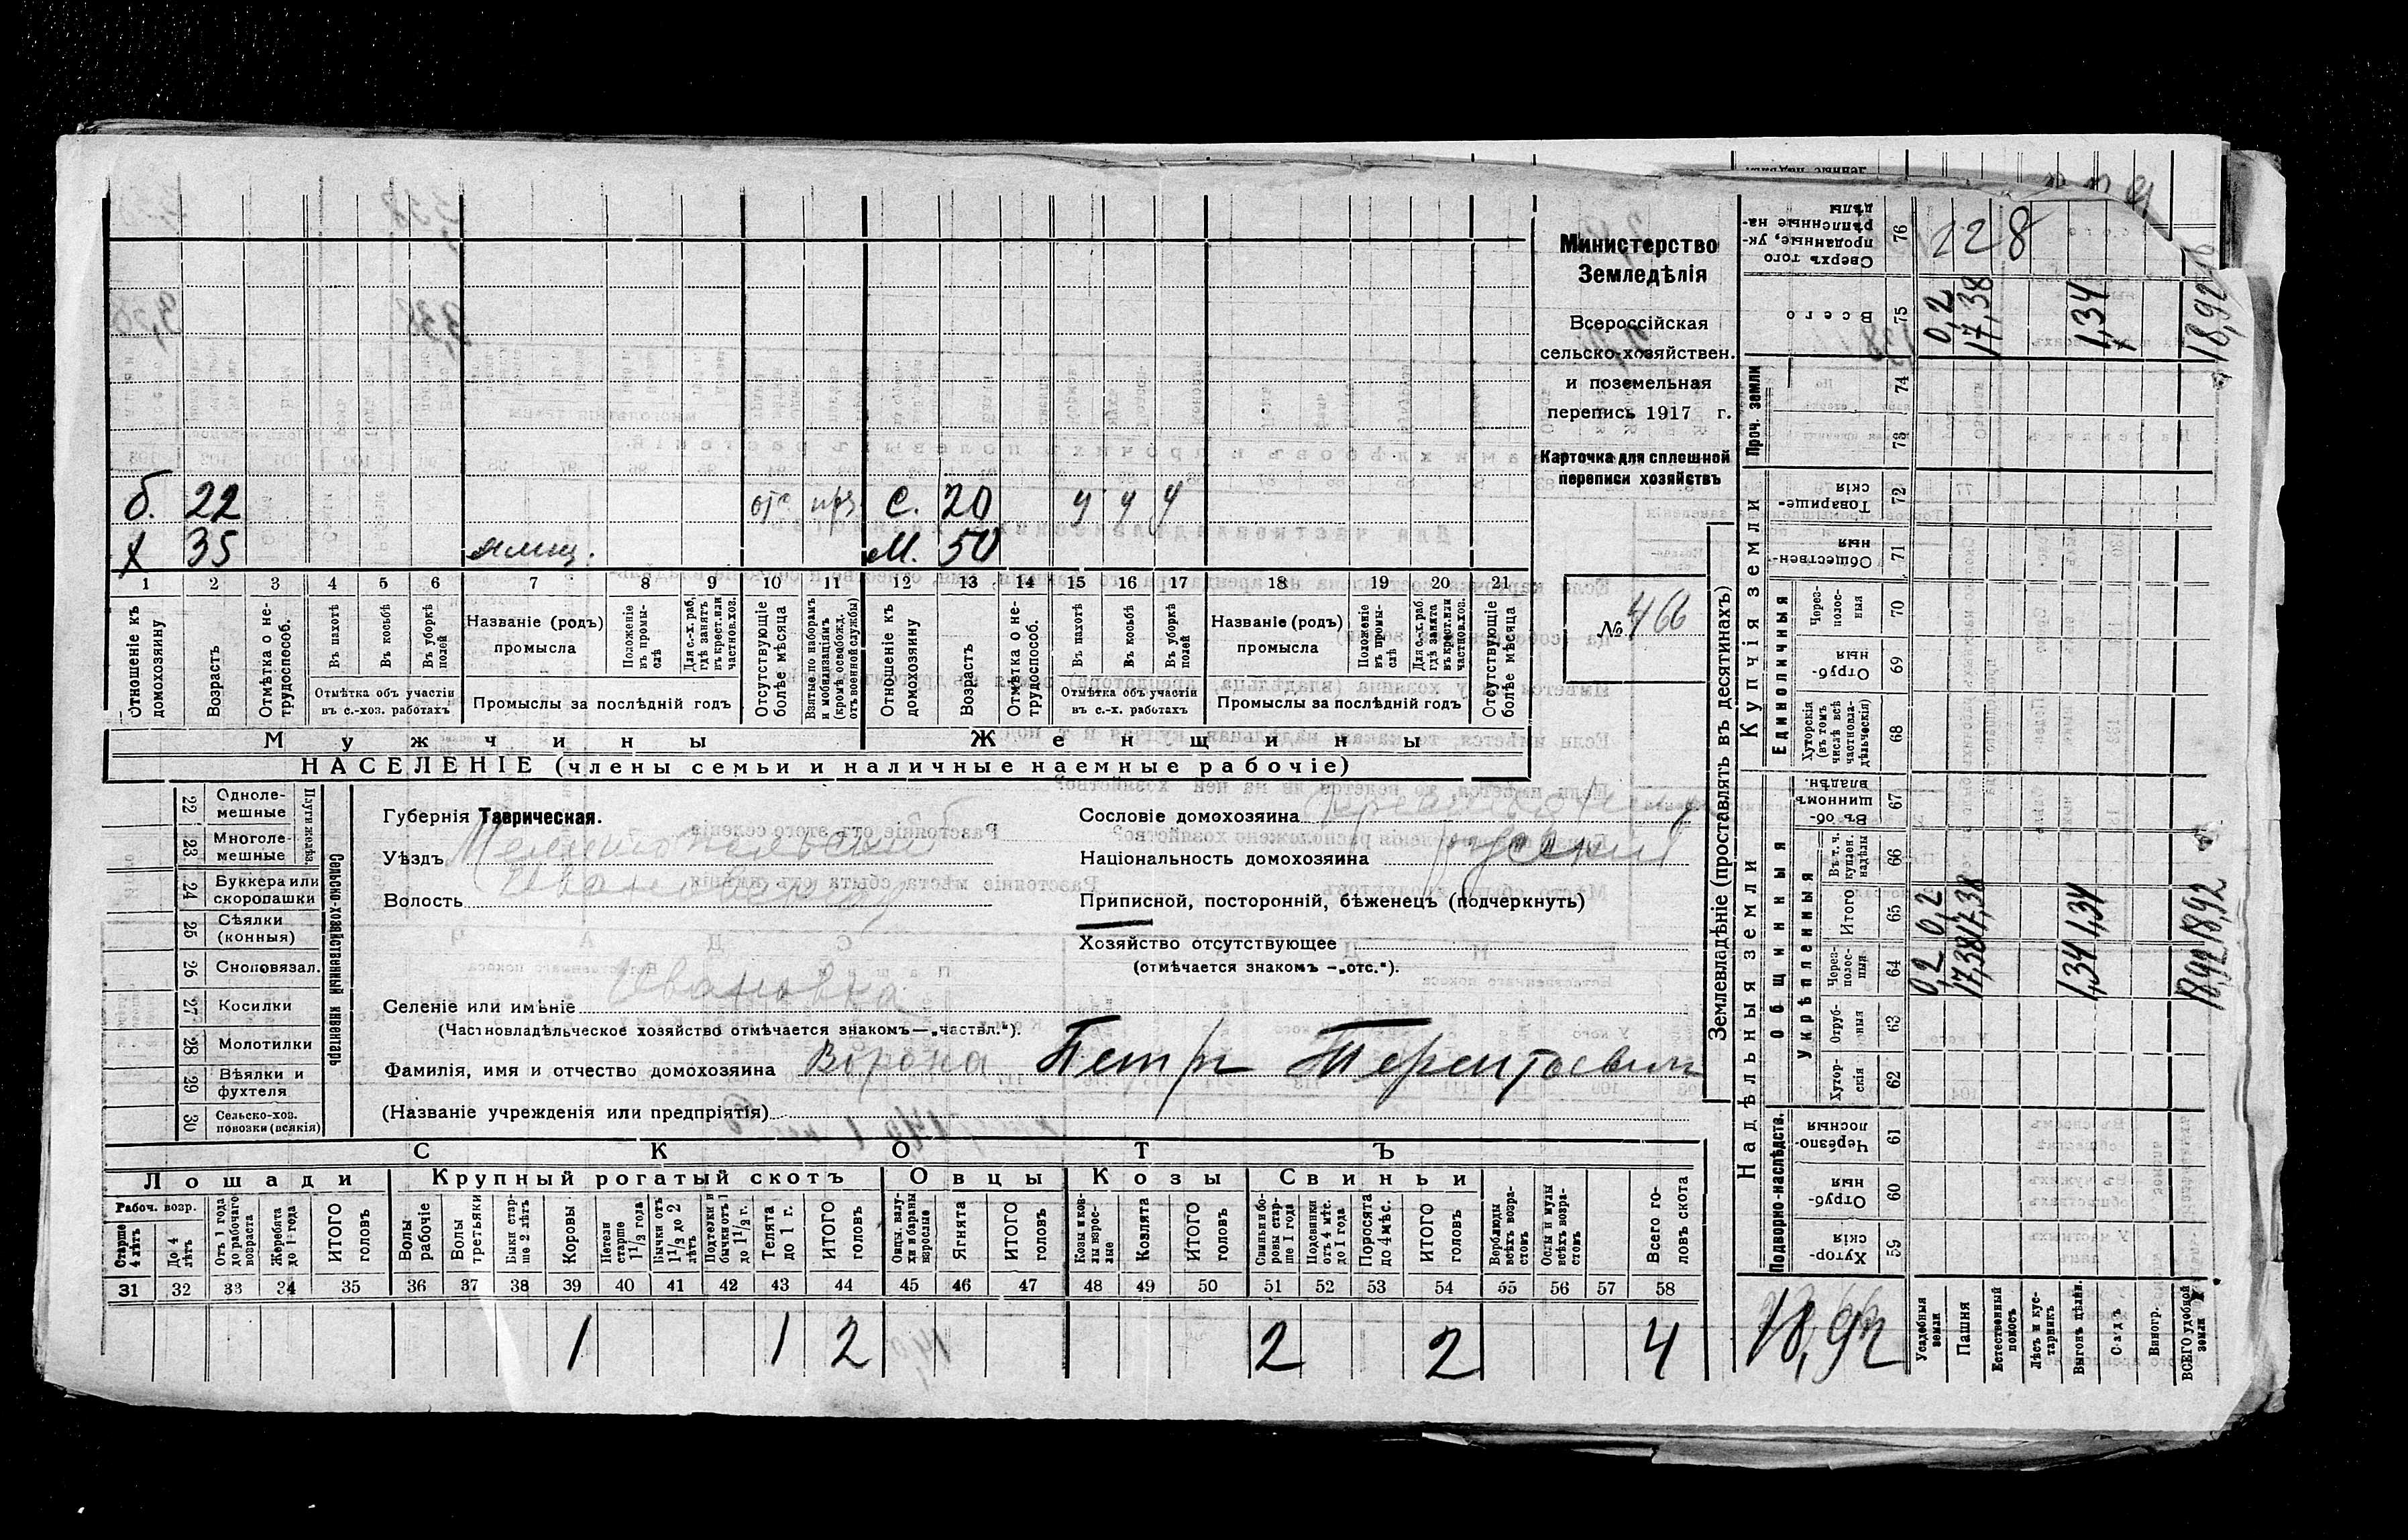 Министерство
Земледѣлія
Всероссійская
сельско-хозяйствен.
и поземельная
перепись 1917 г.
Карточка для сплошной
переписи хозяйствъ
№ 466
б. 22 отс. С. 20 у у у
Х 35 М. 50
1 2 3 4 5 6 7 8 9 10 11 12 13 14 15 16 17 18 19 20 21
Отношеніе къ домохозяину
Возрастъ
Отмѣтка о нетрудоспособ.
Въ пахотѣ
Въ косьбѣ
Въ уборкѣ полей
Отмѣтка объ участіи въ с.-хоз. работахъ
Названіе (родъ) промысла
Положеніе въ промыслѣ
Для с.-х. раб. гдѣ занятъ въ крест. или частнов. хоз.
Промыслы за послѣдній годъ
Отсутствующіе болѣе мѣсяца
Взятые по наборамъ и мобилизаціямъ (кромѣ освобожд. отъ военной службы)
Отношеніе къ домохозяину
Возрастъ
Отмѣтка о нетрудоспособ.
Въ пахотѣ
Въ косьбѣ
Въ уборкѣ полей
Отмѣтка объ участіи въ с.-х. работахъ
Названіе (родъ) промысла
Положеніе въ промыслѣ
Для с.-х. раб. гдѣ занята въ крест. или частнов. хоз.
Промыслы за послѣдній годъ
Отсутствующіе болѣе мѣсяца
Мужчины Женщины
НАСЕЛЕНІЕ (члены семьи и наличные наемные рабочіе)
Сельско-хозяйственный инвентарь
Плуги желѣз.
22 Однолемешные
23 Многолемешные
24 Буккера или скоропашки
25 Сѣялки (конныя)
26 Сноповязал.
27 Косилки
28 Молотилки
29 Вѣялки и фухтеля
30 Сельско-хоз. повозки (всякія)
Губернія Таврическая.
Уѣздъ Мелитопольскій
Волость Ивановская
Селеніе или имѣніе Ивановка
(Частновладѣльческое хозяйство отмѣчается знакомъ — „частвл.“).
Фамилія, имя и отчество домохозяина Ворона Петръ Терентьевич
(Названіе учрежденія или предпріятія)
Сословіе домохозяина
Національность домохозяина русскій
Приписной, посторонній, бѣженецъ (подчеркнуть)
Хозяйство отсутствующее
(отмѣчается знакомъ — „отс.“).
СКОТЪ
Лошади Крупный рогатый скотъ Овцы Козы Свиньи
Рабоч. возр.
Старше 4 лѣтъ
До 4 лѣтъ
Отъ 1 года до рабочаго возраста
Жеребята до 1 года
ИТОГО головъ
Волы рабочіе
Волы третьяки
Быки старше 2 лѣтъ
Коровы
Нетели старше 1 1/2 года
Бычки отъ 1 1/2 до 2 лѣтъ
Подтелки и бычки отъ 1 до 1 1/2 г.
Телята до 1 г.
ИТОГО головъ
Овцы, валухи и бараны взрослые
Ягнята
ИТОГО головъ
Козы и козлы взрослые
Козлята
ИТОГО головъ
Свиньи и боровы старше 1 года
Подсвинки отъ 4 мѣс. до 1 года
Поросята до 4 мѣс.
ИТОГО головъ
Верблюды всѣхъ возрастовъ
Ослы и мулы всѣхъ возрастовъ
Всего головъ скота
31 32 33 34 35 36 37 38 39 40 41 42 43 44 45 46 47 48 49 50 51 52 53 54 55 56 57 58
1 1 2 2 2 4
Землевладѣніе (проставлять въ десятинахъ)
Надѣльныя земли
Купчія земли
Проч. земли
Подворно-наслѣдств.
Общинныя
Укрѣпленныя
Единоличныя
Хуторскія 59
Отрубныя 60
Черезполосныя 61
Хуторскія 62
Отрубныя 63
Черезполосныя 64
Итого 65
Въ т. ч. куплен. надѣлы 66
Въ общинномъ владѣн. 67
Хуторскія (въ томъ числѣ всѣ частновладѣльческія) 68
Отрубныя 69
Черезполосныя 70
Общественныя 71
Товарищескія 72
73
74
Всего 75
Сверхъ того проданные, укрѣпленные надѣлы 76
Усадебныя земли 0,2 0,2 0,2
Пашня 17,38 17,38 17,38
Естественный покосъ
Лѣсъ и кустарникъ
Выгонъ цѣлин. 1,34 1,34 1,34
Садъ
Виногр.
ВСЕГО удобной земли 18,92 18,92 18,92
18,92
128